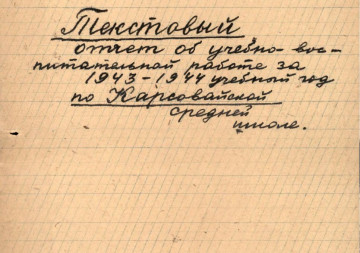 Текстовый
отчет об учебно-вос-
питательной работе за
1943-1944 учебный год
по Карсовайской
средней
школе.